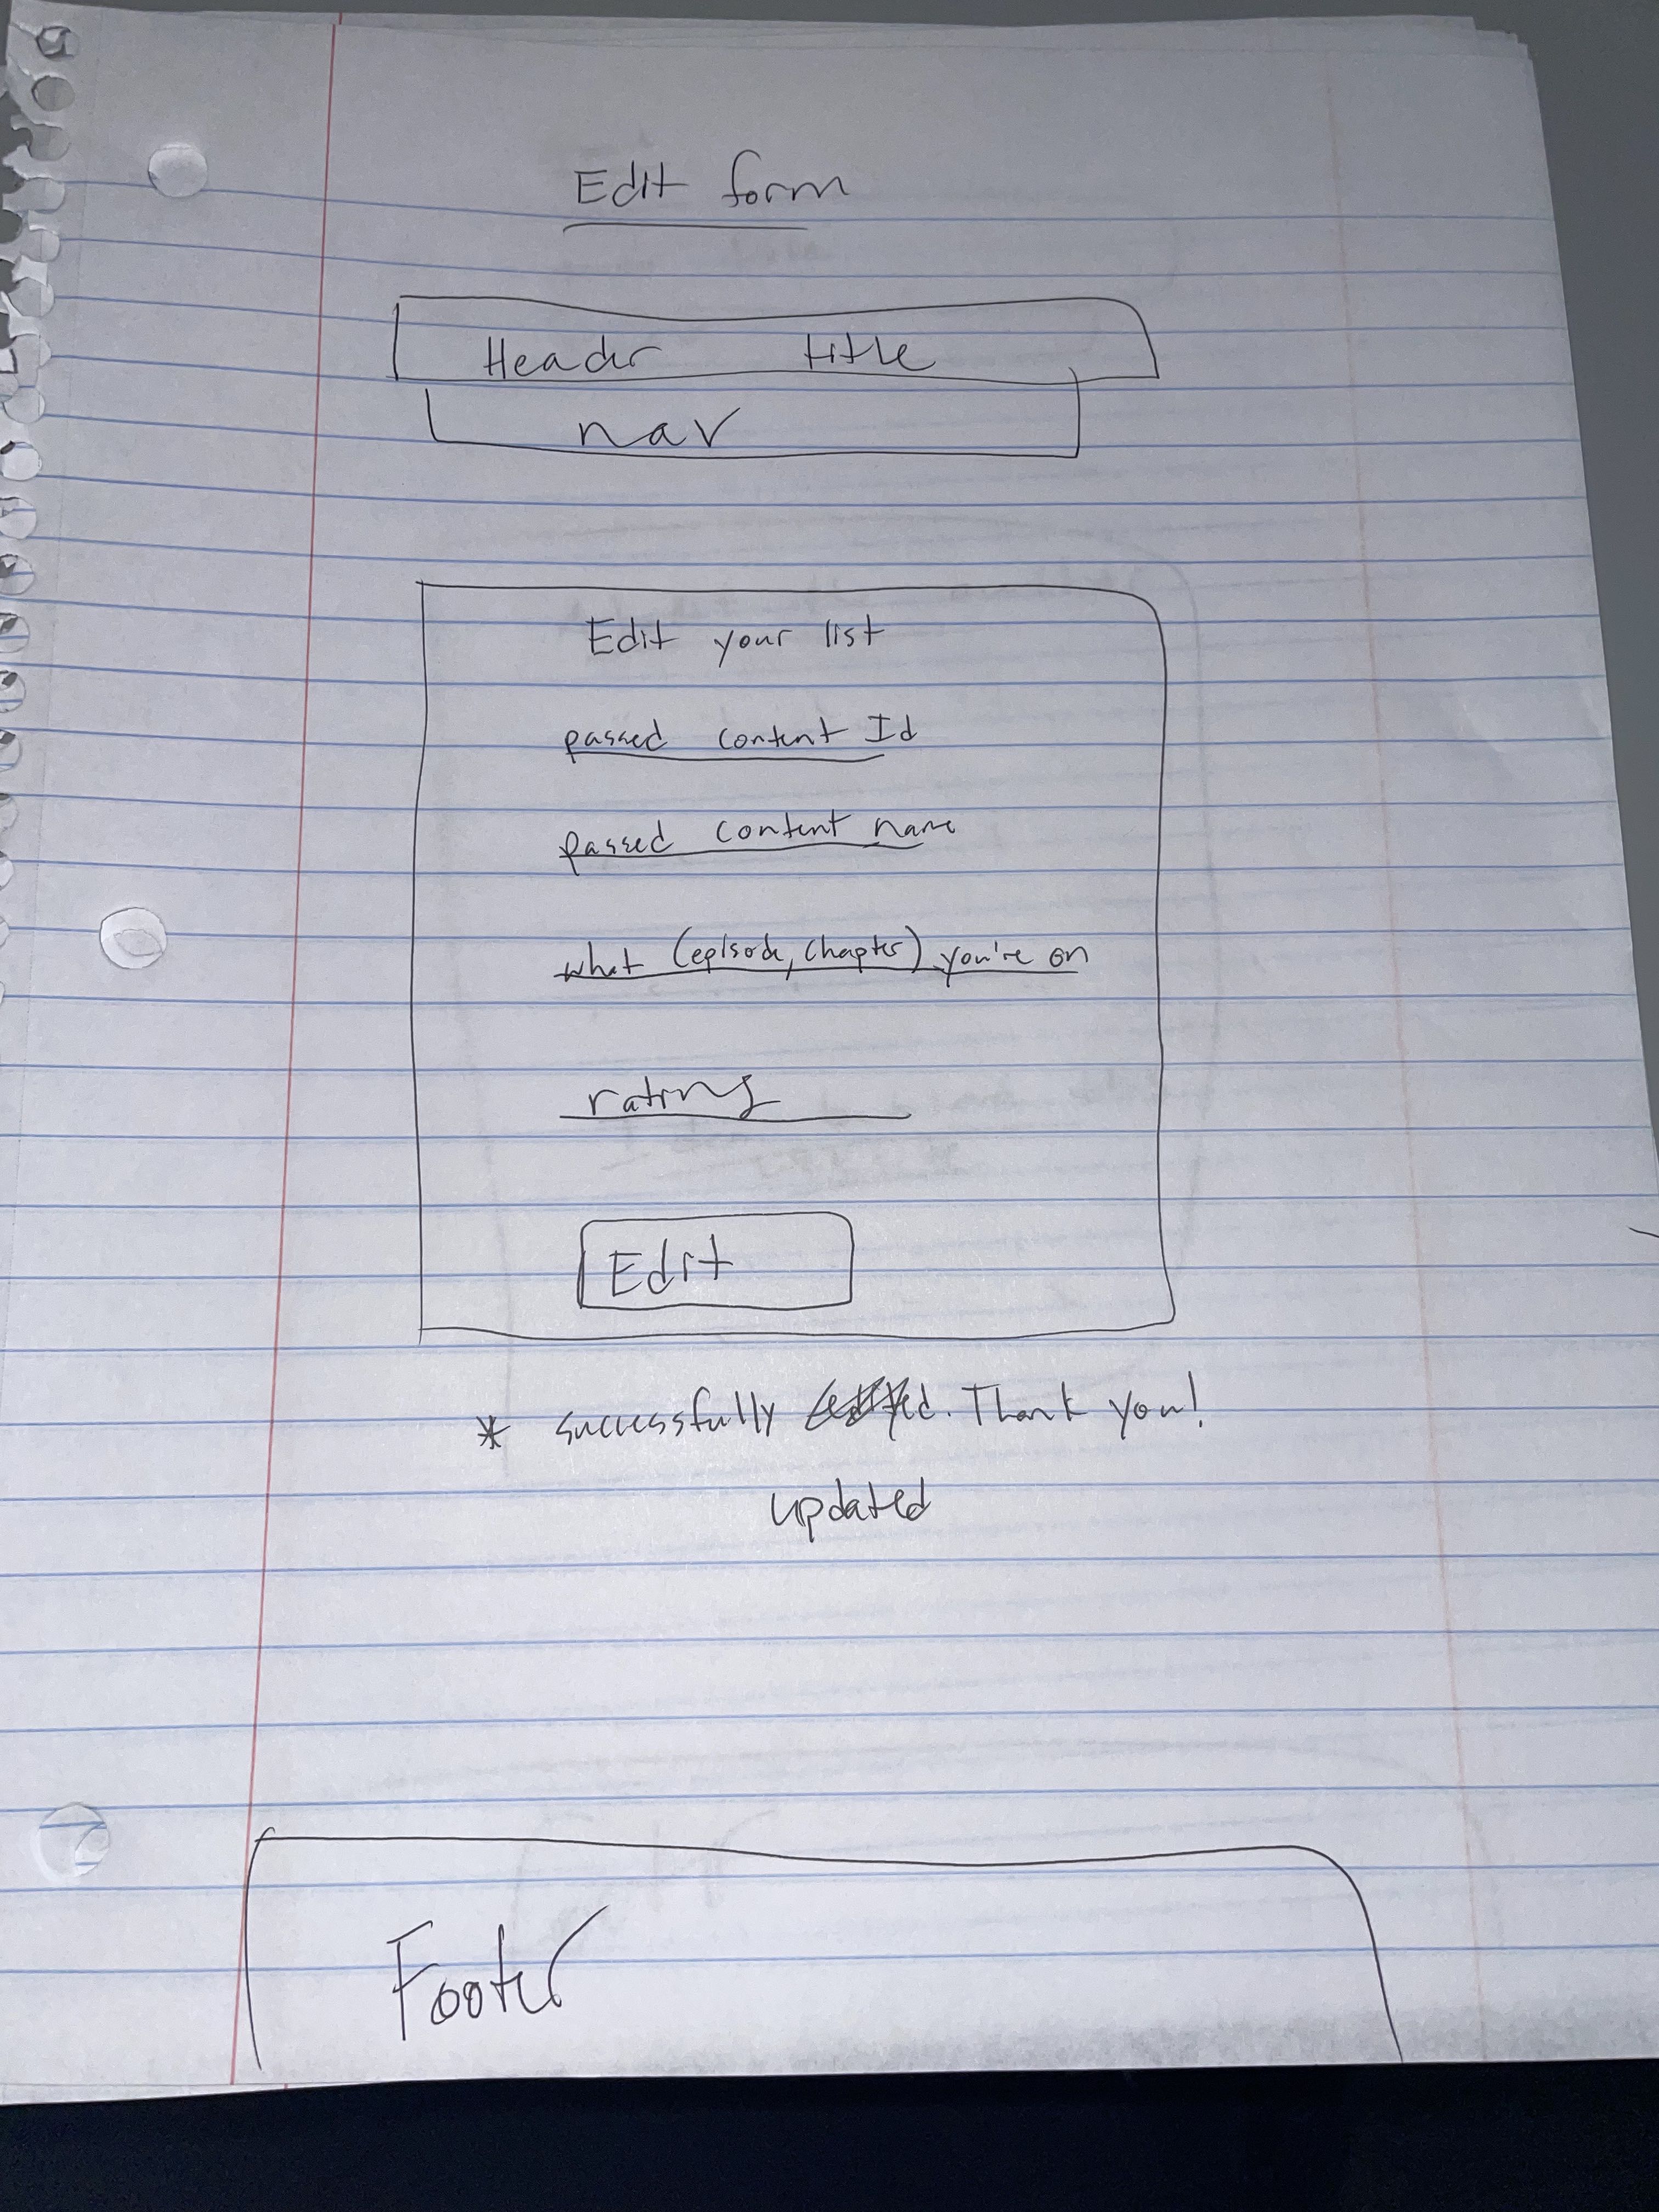 Edit form
Header title
nav
Edit your list
passed content Id
passed content name
what (episode, chapter) you're on
rating
Edit
* successfully edited. Thank you!
updated
Footer